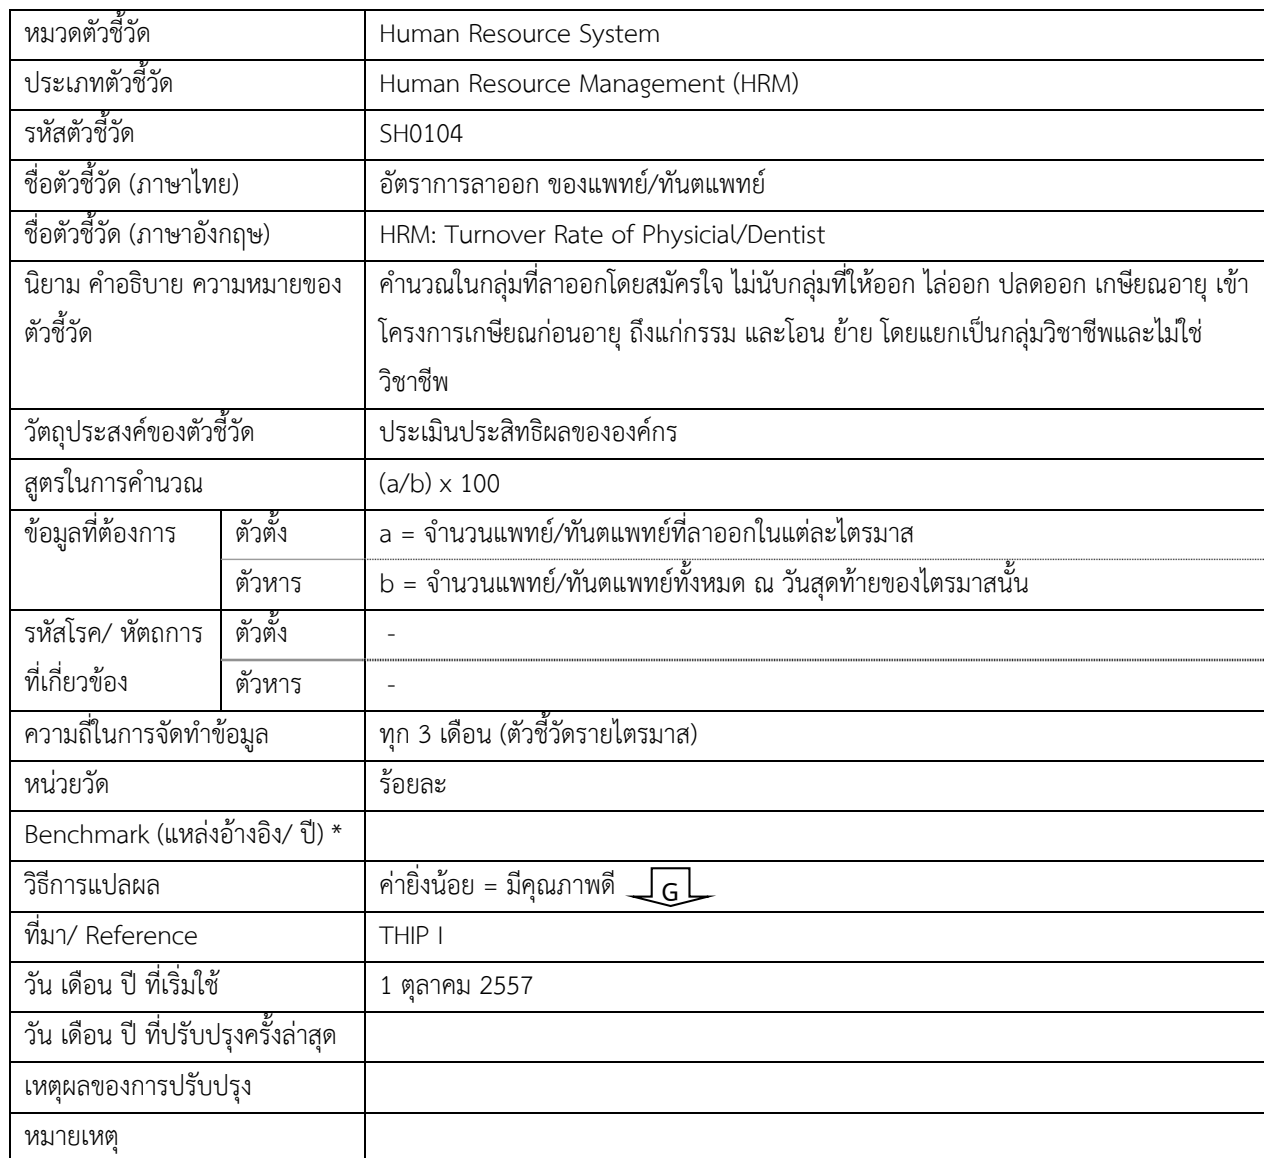 หมวดตัวชี้วัด Human Resource System
ประเภทตัวชี้วัด Human Resource Management (HRM)
รหัสตัวชี้วัด SH0104
ชื่อตัวชี้วัด (ภาษาไทย) อัตราการลาออก ของแพทย์/ทันตแพทย์
ชื่อตัวชี้วัด (ภาษาอังกฤษ) HRM: Turnover Rate of Physicial/Dentist
นิยาม คำอธิบาย ความหมายของ คำนวณในกลุ่มที่ลาออกโดยสมัครใจ ไม่นับกลุ่มที่ให้ออก ไล่ออก ปลดออก เกษียณอายุ เข้า
ตัวชี้วัด โครงการเกษียณก่อนอายุ ถึงแก่กรรม และโอน ย้าย โดยแยกเป็นกลุ่มวิชาชีพและไม่ใช่
วิชาชีพ
วัตถุประสงค์ของตัวชี้วัด ประเมินประสิทธิผลขององค์กร
สูตรในการคำนวณ (a/b) x 100
ข้อมูลที่ต้องการ ตัวตั้ง a = จำนวนแพทย์/ทันตแพทย์ที่ลาออกในแต่ละไตรมาส
ตัวหาร b = จำนวนแพทย์/ทันตแพทย์ทั้งหมด ณ วันสุดท้ายของไตรมาสนั้น
รหัสโรค/ หัตถการ ตัวตั้ง -
ที่เกี่ยวข้อง ตัวหาร -
ความถี่ในการจัดทำข้อมูล ทุก 3 เดือน (ตัวชี้วัดรายไตรมาส)
หน่วยวัด ร้อยละ
Benchmark (แหล่งอ้างอิง/ ปี) *
วิธีการแปลผล ค่ายิ่งน้อย = มีคุณภาพดี G
ที่มา/ Reference THIP I
วัน เดือน ปี ที่เริ่มใช้ 1 ตุลาคม 2557
วัน เดือน ปี ที่ปรับปรุงครั้งล่าสุด
เหตุผลของการปรับปรุง
หมายเหตุ